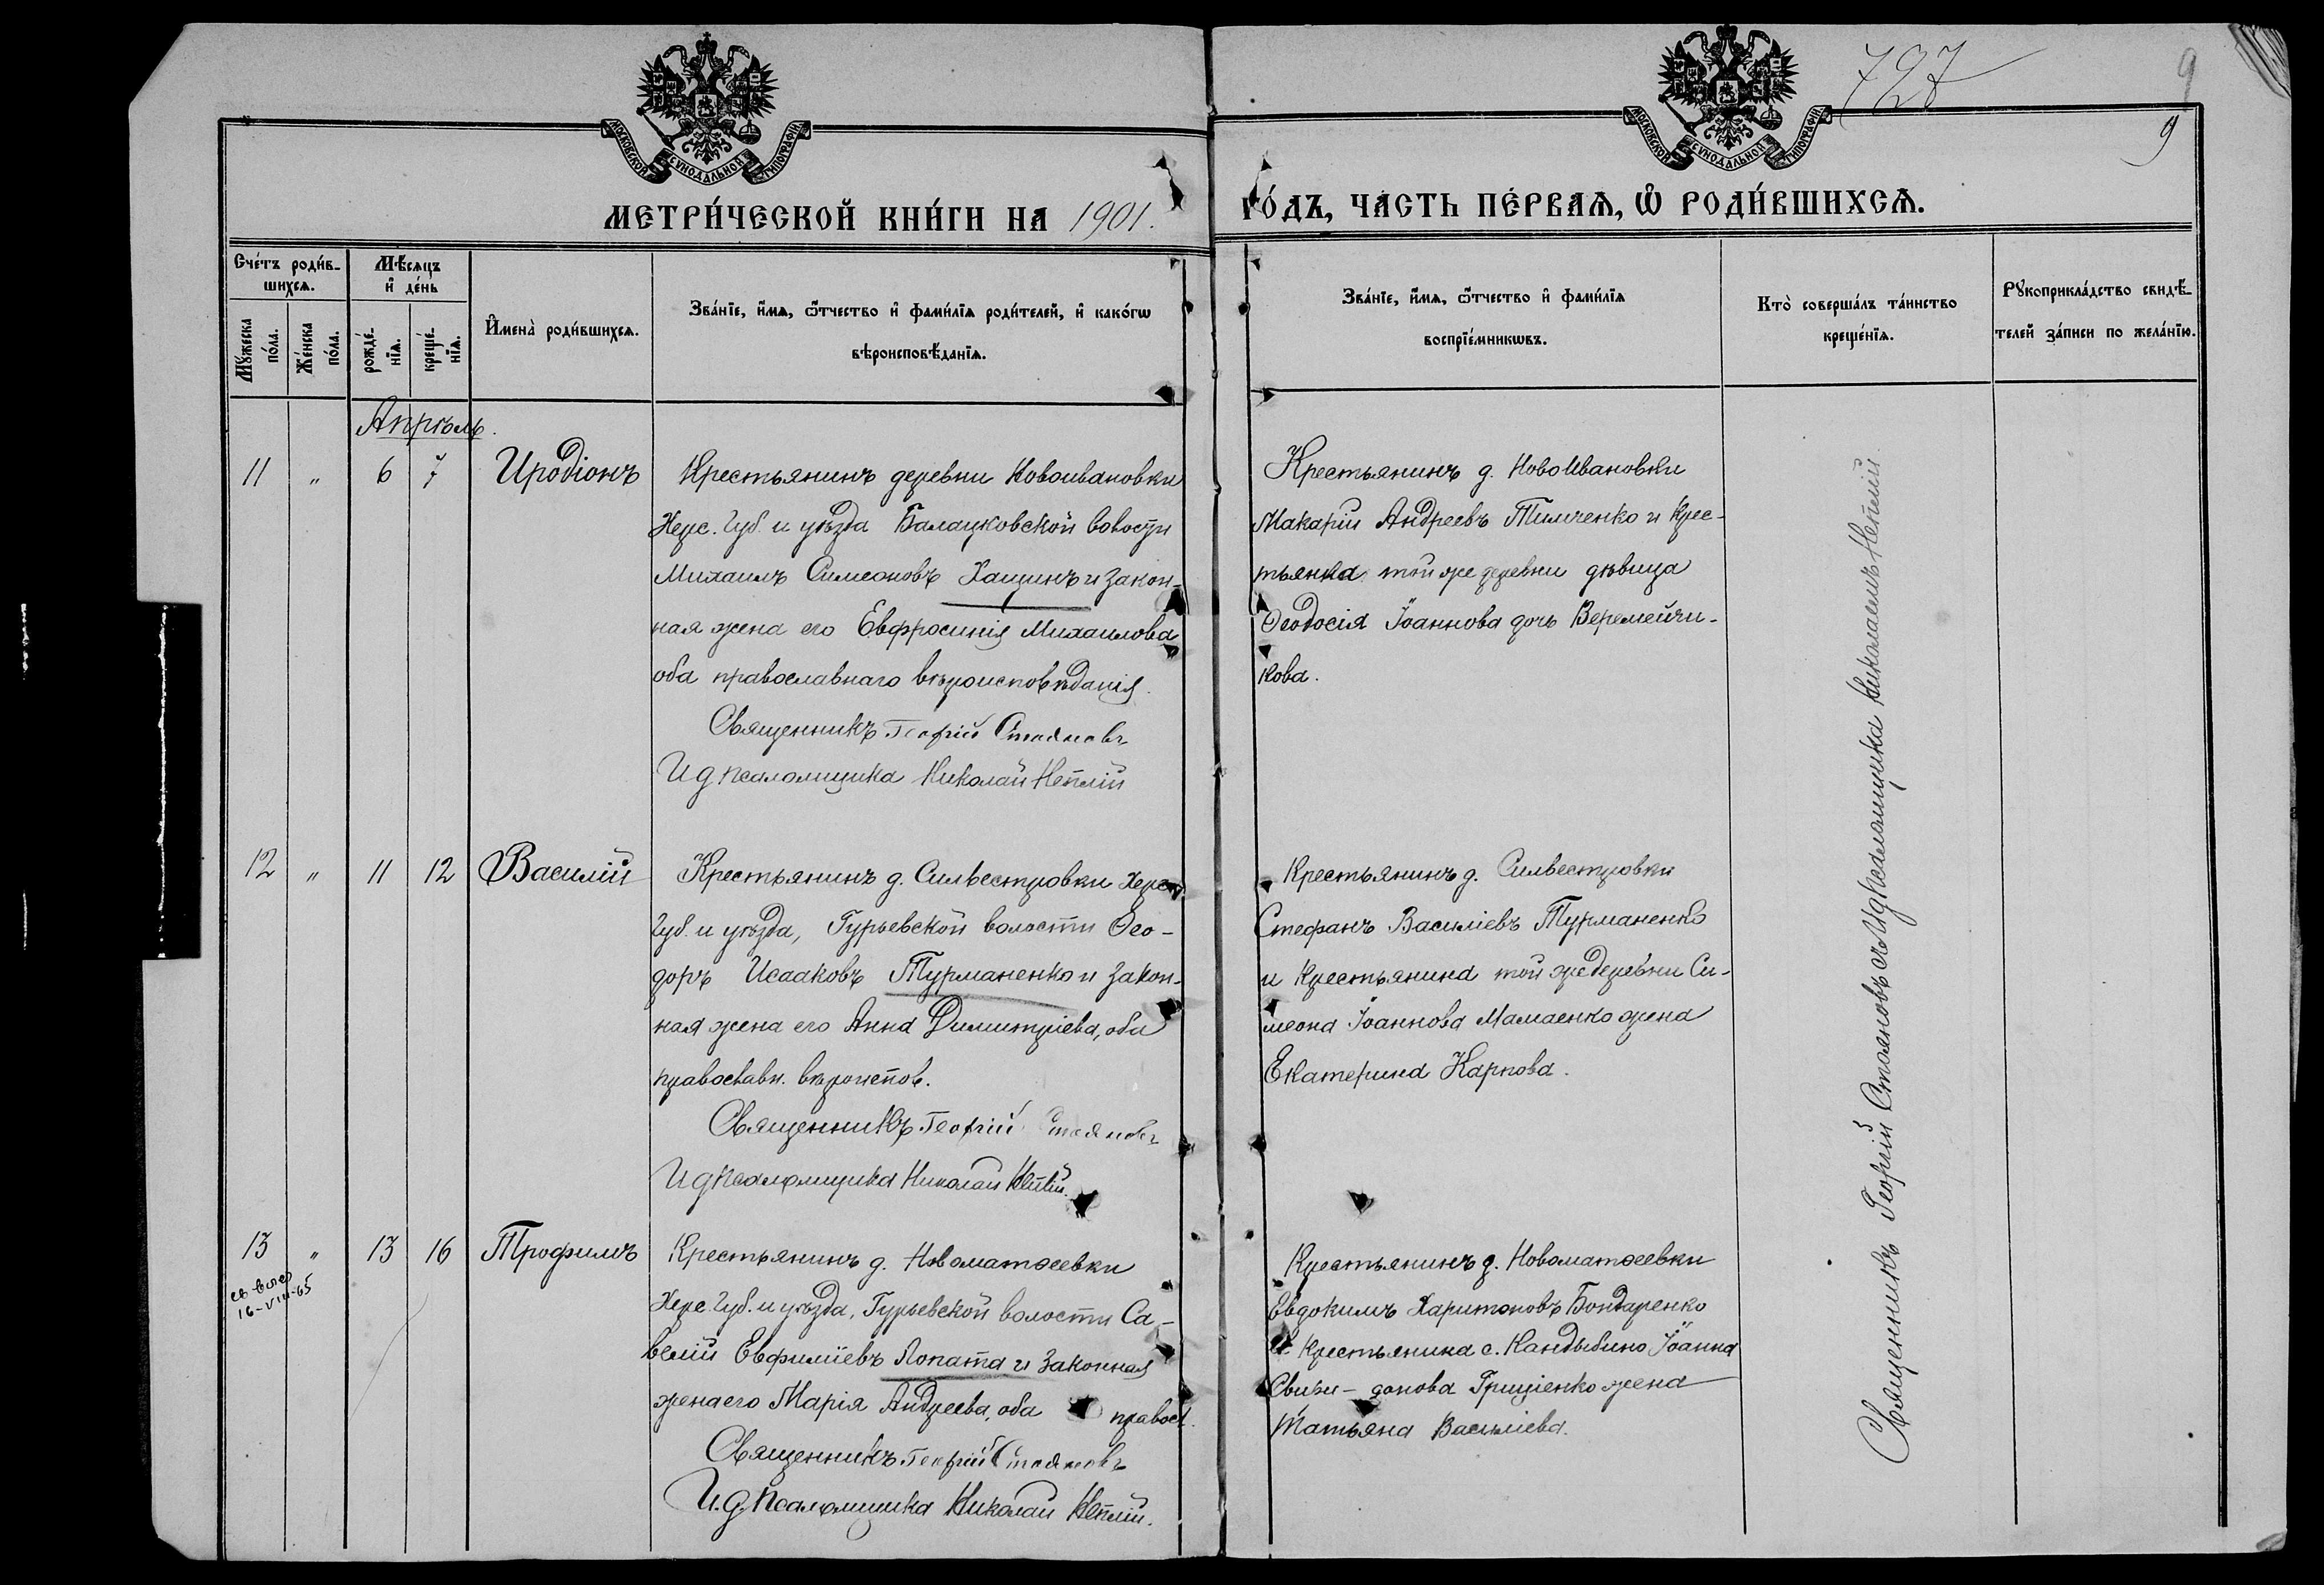 727
9
9
МОСКОВСКОЙ СѴНОДАЛЬНОЙ ТИПОГРАФІИ
МОСКОВСКОЙ СѴНОДАЛЬНОЙ ТИПОГРАФІИ
МЕТРИ́ЧЕСКОЙ КНИ́ГИ НА 1901.
ГО́ДЪ, ЧА́СТЬ ПЕ́РВАѦ, Ѡ РОДИ́ВШИХСѦ.
Сче́тъ роди́в-
шихсѧ.
Мꙋжеска по́ла.
Же́нска по́ла.
Мѣ́сяцъ
и҆ де́нь
рожде́-
нїѧ.
креще́-
нїѧ.
И҆мена̀ роди́вшихсѧ.
Зва́нїе, и҆́мѧ, ѻ҆́тчество и҆ фами́лїѧ роди́телей, и҆ како́гѡ
вѣроисповѣ́данїѧ.
Зва́нїе, и҆́мѧ, ѻ҆́тчество и҆ фами́лїѧ
воспрїе́мникѡвъ.
Кто̀ соверша́лъ та́инство
креще́нїѧ.
Рꙋкоприкла́дство свидѣ́-
телей за́писи по жела́нїю.
Апрѣль.
11 " 6 7 Иродіонъ
Крестьянинъ деревни Новоивановки
Херс. Губ. и уѣзда Балацковской волости
Михаилъ Симеоновъ Хащинъ и закон-
ная жена его Евфросинія Михаилова
оба православнаго вѣроисповѣданія.
Священникъ Георгій Стояновъ
И д псаломщика Николай
Крестьянинъ д. НовоИвановки
Макарій Андреевъ Тимченко и крес-
тьянка той же деревни дѣвица
Ѳеодосія Іоаннова дочь Веремейчи-
кова.
12 " 11 12 Василій
Крестьянинъ д. Сильвестровки Херс.
Губ. и уѣзда, Гурьевской волости Ѳео-
доръ Исааковъ Турманенко и закон-
ная жена его Анна Димитріева, оба
православн. вѣроиспов.
Священникъ Георгій Стояновъ
И д псаломщика Николай
Крестьянинъ д. Сильвестровки
Стефанъ Василіевъ Турманенко
и крестьянина той же деревни Си-
меона Іоаннова Мамаенко жена
Екатерина Карпова.
13 " 13 16 Трофимъ
16-VIII-65
Крестьянинъ д. Новоматѳеевки
Херс. Губ. и уѣзда, Гурьевской волости Са-
велій Евфиміевъ Лопата и законная
жена его Марія Андреева, оба правосл.
Священникъ Георгій Стояновъ
И. д. псаломщика Николай
Крестьянинъ д. Новоматѳеевки
Евдокимъ Харитоновъ Бондаренко
и крестьянина с. Кандыбино Іоанна
Свири- донова Гриціенко жена
Татьяна Василіева.
Священникъ Георгій Стояновъ съ И д псаломщика Николаемъ